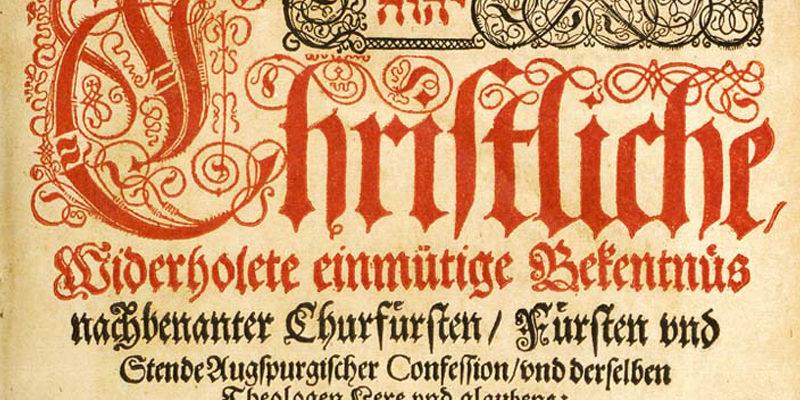 Chriſtliche/
Widerholete einmütige Bekentnüs
nachbenanter Churfürſten/ Fürſten vnd
Stende Augſpurgiſcher Confeſſion/ vnd derſelben
Theologen Lere vnd glaubens.